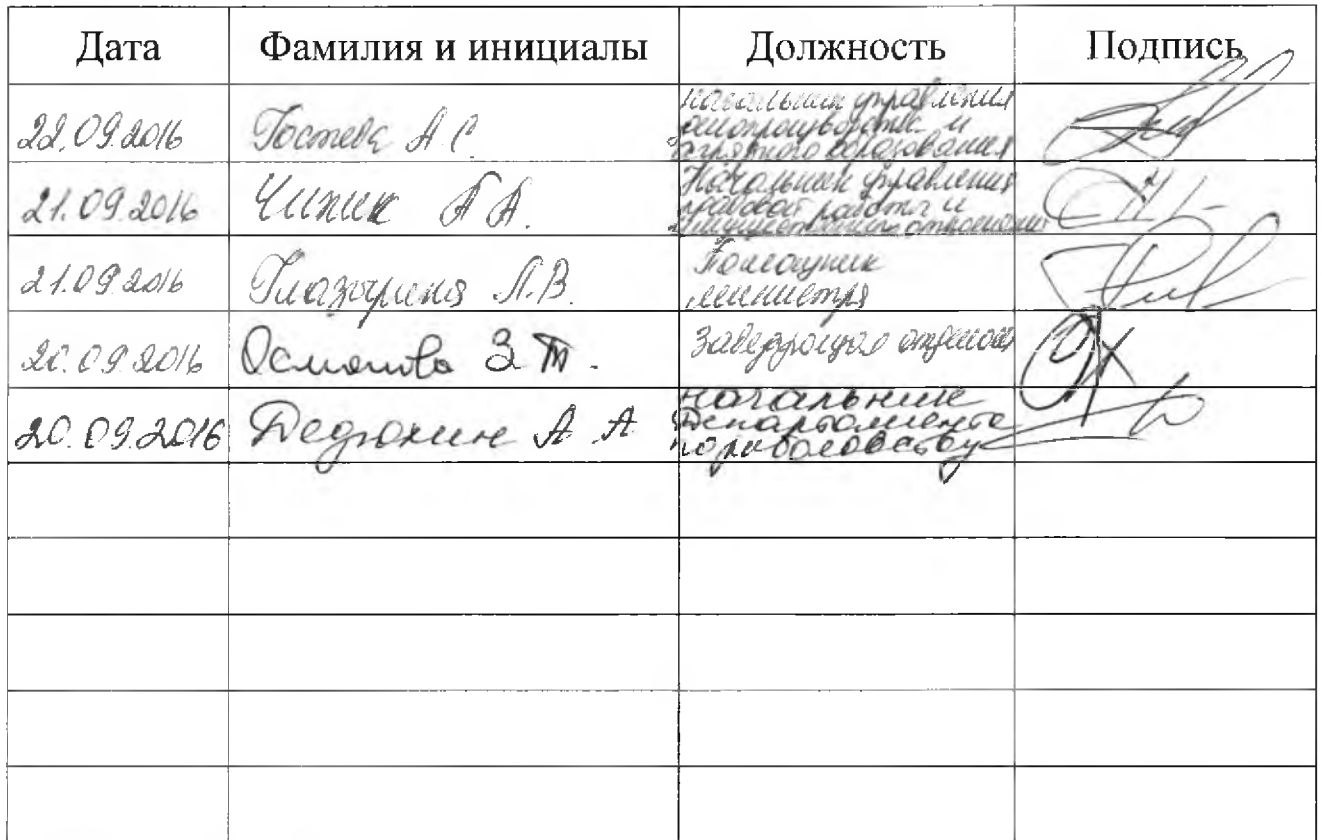 Дата Фамилия и инициалы Должность Подпись
22.09.2016 Гостева А С начальник управления
и
аграрного образования
21.09.2016 Чижик А А. Начальник управления
правовой работы и
имущественных отношений
21.09.2016 Глазырина Л.В. Помощник
министра
20.09.2016 Османова З Т. Заведующая отделом
20.09.2016 Дедюхин А А начальник
Департамента
по рыболовству